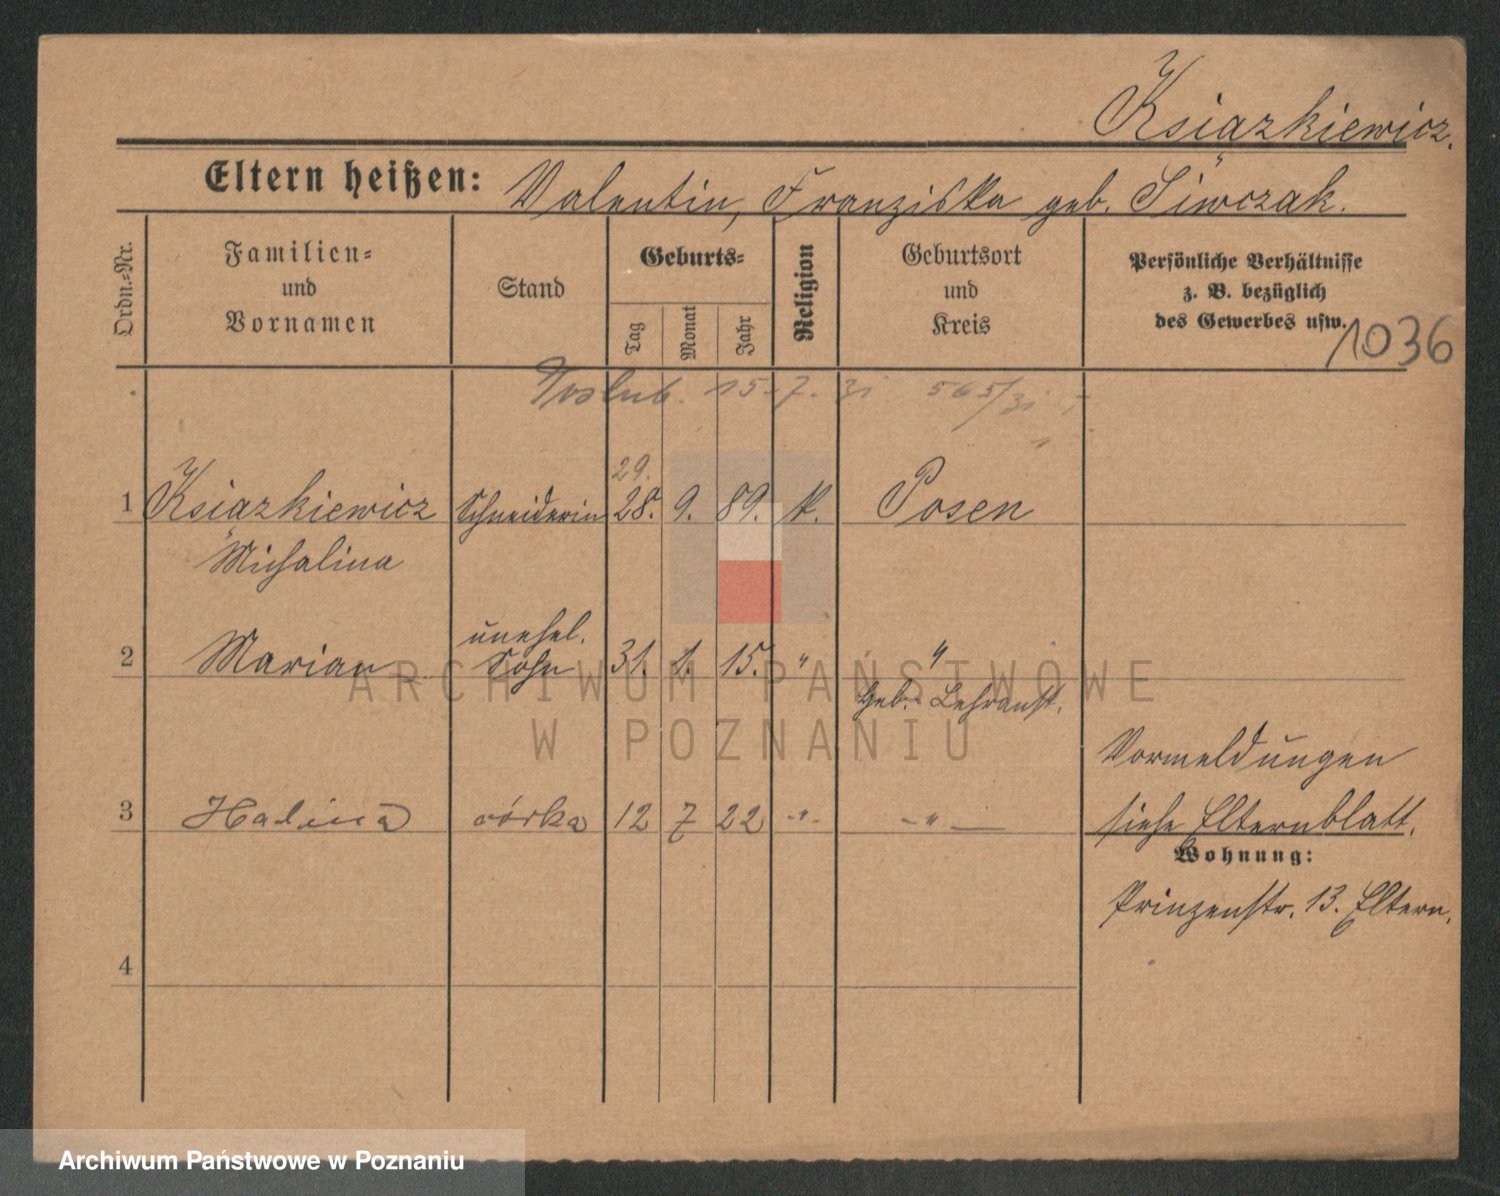 Ksiazkiewicz.
Eltern heißen: Valentin, Franziska geb. Siwczak.
Ordn.-Nr.
Familien-
und
Vornamen
Stand
Geburts-
Tag
Monat
Jahr
Religion
Geburtsort
und
Kreis
Persönliche Verhältnisse
z. B. bezüglich
des Gewerbes usw.
1036
15.7.31 565/31
29.
1 Ksiazkiewicz Schneiderin 28. 9. 89. k. Posen
Michalina
unehel.
2 Marian Sohn 31. 1. 15. " "
Geb.- Lehranst.
Vormeldungen
3 Halina córka 12 7 22 -"- -"-
siehe Elternblatt.
Wohnung:
Prinzenstr. 13. Eltern.
4
ARCHIWUM PAŃSTWOWE
W POZNANIU
Archiwum Państwowe w Poznaniu